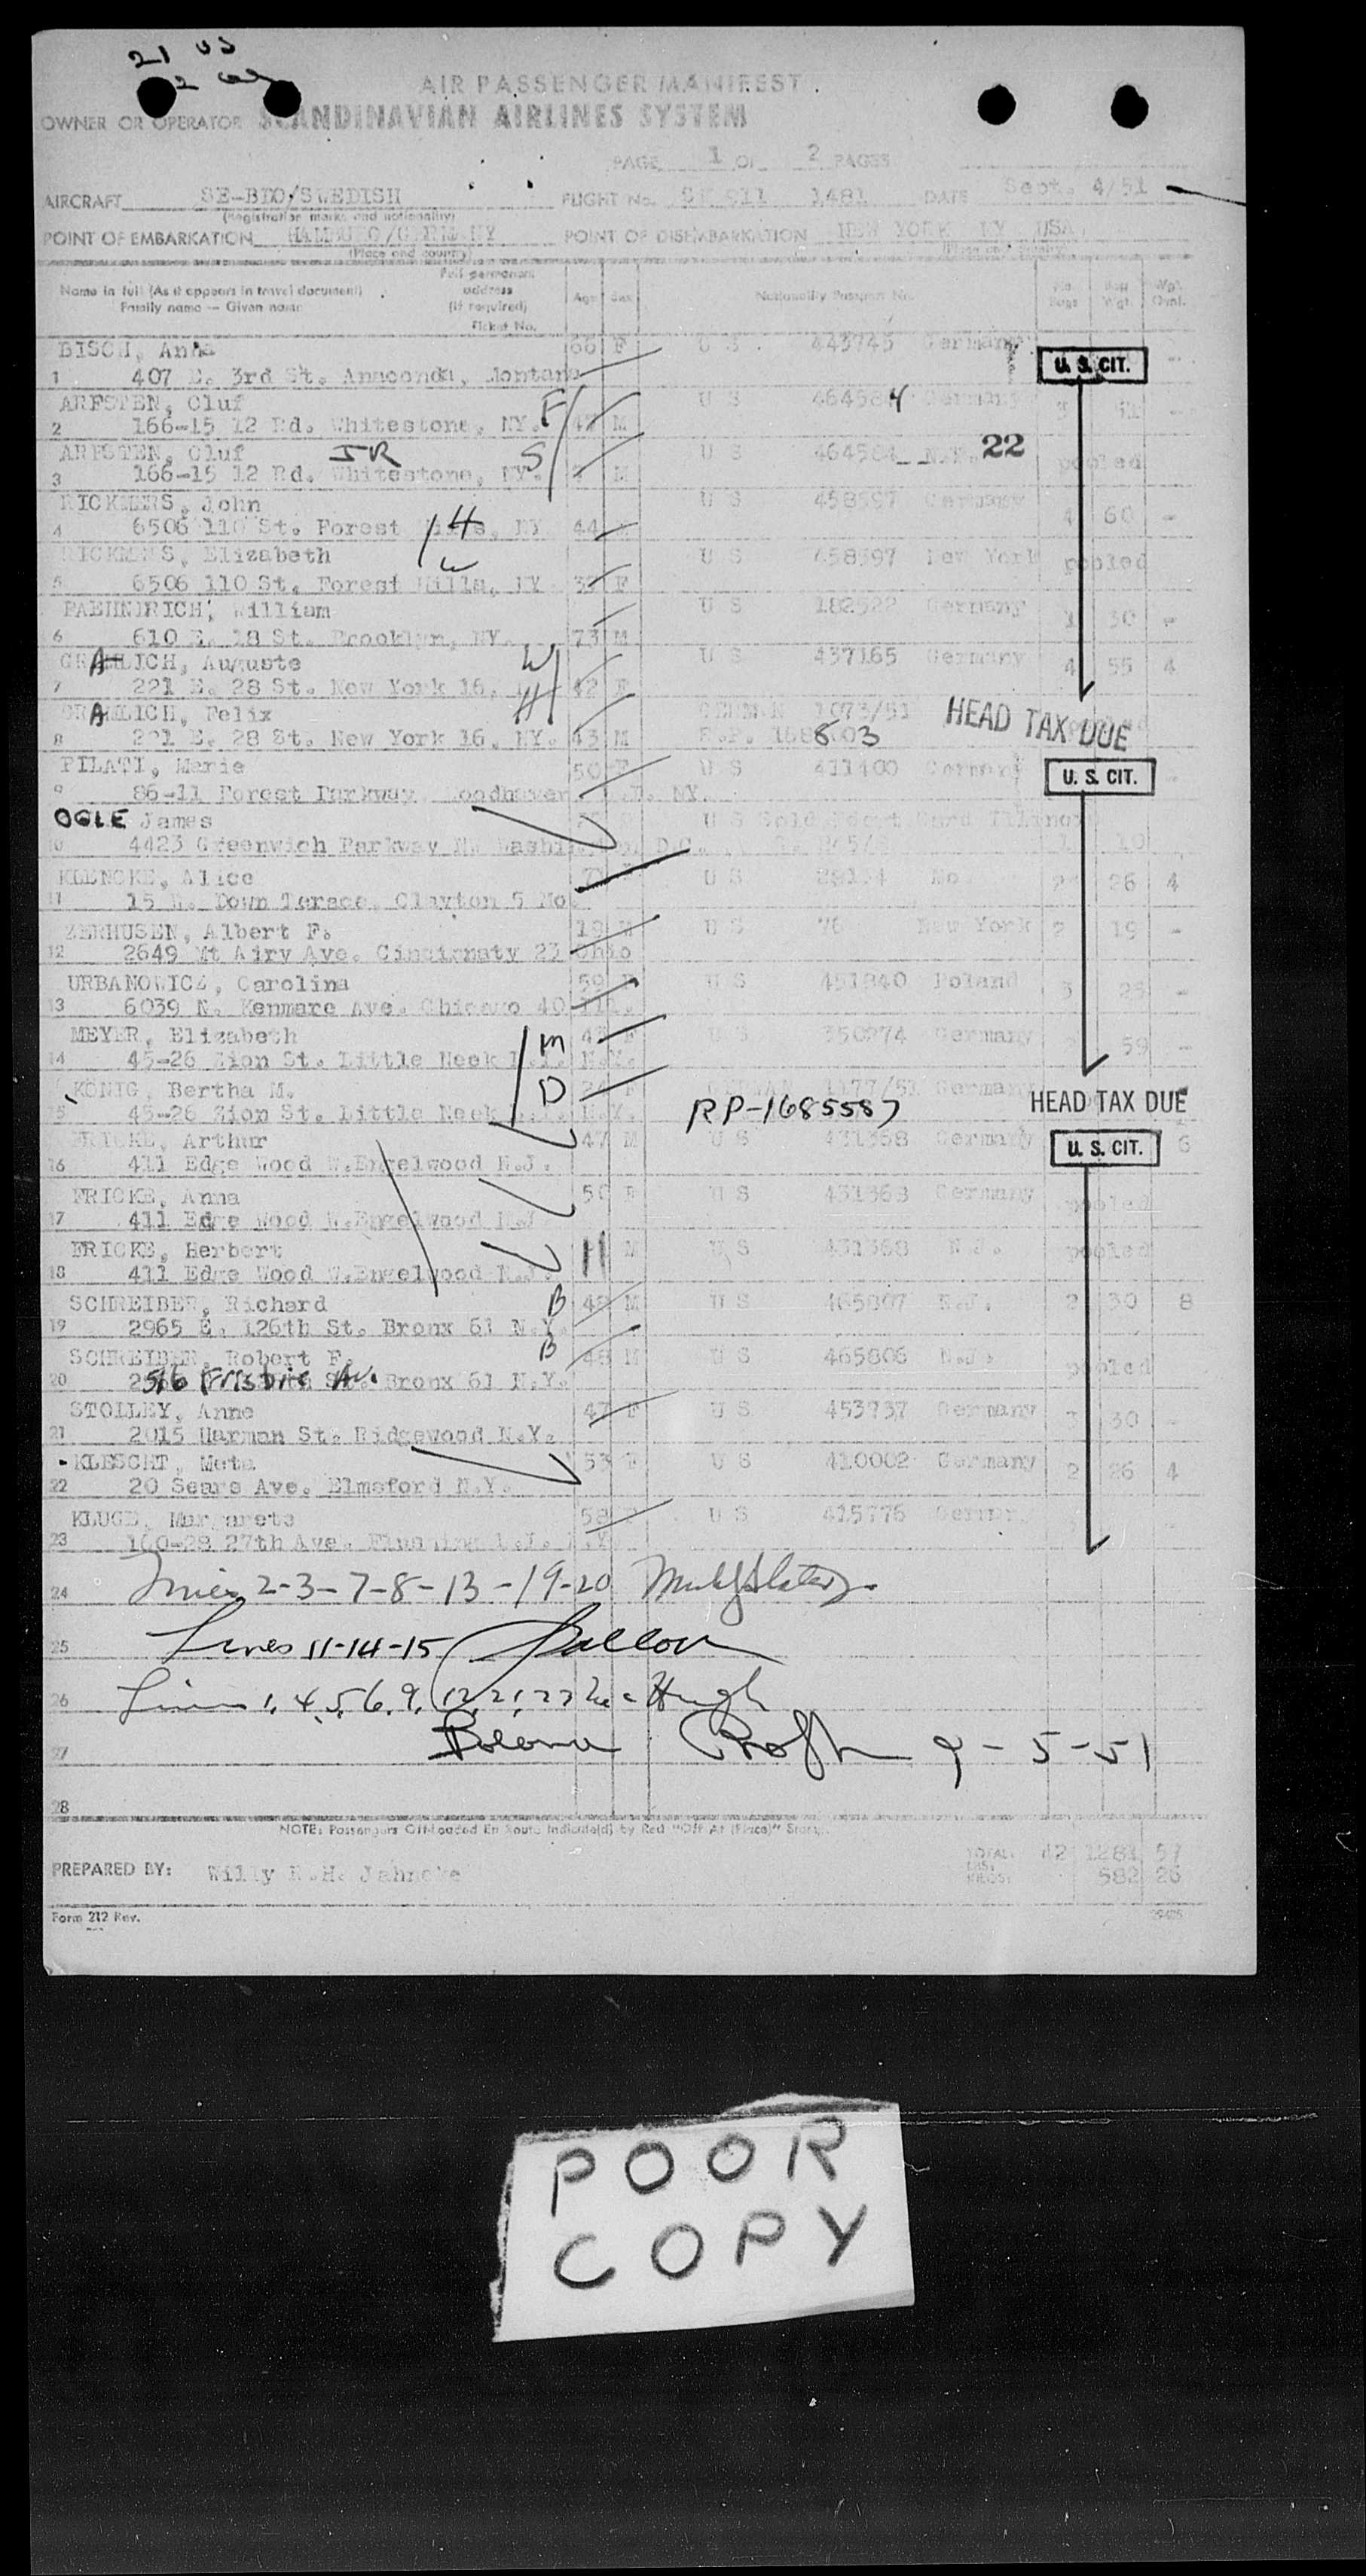 21 US
2
AIR PASSENGER MANIFEST
OWNER OR OPERATOR SCANDINAVIAN AIRLINES SYSTEM
PAGE 1 OF 2 PAGES
AIRCRAFT SE-BDO/SWEDISH FLIGHT No. SK 911 1481 DATE Sept. 4/51
(Registration marks and nationality)
POINT OF EMBARKATION HAMBURG/GERMANY POINT OF DISEMBARKATION NEW YORK NY USA.
(Place and country) (Place and country)
Name in full (As it appears in travel document) Full permanent address (if required) Age Sex Nationality Passport No. No. Bags Bag Wgt. Wgt. Ovnt.
Family name — Given name Ticket No.
BISCH, Anna 66 F U S 443745 Germany U. S. CIT. -
1 407 E. 3rd St. Anaconda, Montana
ARFSTEN, Oluf F U S 464584 Germany -
2 166-15 12 Rd. Whitestone, NY. 47 M
ARFSTEN, Oluf JR S U S 464584 N.Y. 22 pooled
3 166-15 12 Rd. Whitestone, NY. M
RICKMERS, John U S 458597 Germany 4 60 -
4 6506 110 St. Forest Hills, NY 44 H
RICKMERS, Elizabeth W U S 458597 New York pooled
5 6506 110 St. Forest Hills, NY 39 F
PAEHNDRICH, William U S 182522 Germany 1 30 -
6 610 E. 18 St. Brooklyn, NY. 73 M
GRAMLICH, Auguste W U S 437165 Germany 4 55 4
7 221 E. 28 St. New York 16, 42 F
GRAMLICH, Felix H GERMAN 1073/51 HEAD TAX DUE
8 221 E. 28 St. New York 16, NY. 43 M R.P. 1688603
PILATI, Marie 50 F U S 411400 Germany U. S. CIT. -
9 86-11 Forest Parkway, Woodhaven, NY.
OGLE James U S
10 4423 Greenwich Parkway NW Washington D.C. 1 10
KLENCKE, Alice U S Mo 2 26 4
11 15 N. Down Terace, Clayton 5 Mo.
ZERHUSEN, Albert F. 19 M U S 76 New York 2 19 -
12 2649 Mt Airy Ave. Cincinnaty 23 Ohio
URBANOWICZ, Carolina 59 F U S 451840 Poland 3 25 -
13 6039 N. Kenmare Ave. Chicago 40 Ill.
MEYER, Elizabeth M F U S 350974 Germany 2 59 -
14 45-26 Zion St. Little Neck L.I. N.Y.
KÖNIG, Bertha M. D F GERMAN 1177/51 Germany HEAD TAX DUE
15 45-26 Zion St. Little Neck L.I. N.Y. RP-1685587
FRICKE, Arthur 47 M U S 431368 Germany U. S. CIT. 6
16 411 Edge Wood W.Engelwood N.J.
FRICKE, Anna 50 F U S 431368 Germany pooled
17 411 Edge Wood W.Engelwood N.J
FRICKE, Herbert 11 M U S 431368 N.J. pooled
18 411 Edge Wood W.Engelwood N.J.
SCHREIBER, Richard B 48 M U S 465807 N.J. 2 30 8
19 2965 E. 126th St. Bronx 61 N.Y.
SCHREIBER, Robert F. B 48 M U S 465806 N.J. pooled
20 516 Frisbie Av. Bronx 61 N.Y.
STOLLEY, Anne 47 F U S 453737 Germany 3 30 -
21 2015 Harman St. Ridgewood N.Y.
KLESCHT, Meta 53 F U S 410002 Germany 2 26 4
22 20 Sears Ave. Elmsford N.Y.
KLUGE, Margarete 58 F U S 415776 German -
23 160-28 27th Ave. Flushing L.I. N.Y
24 Lines 2-3-7-8-13-19-20
25 Lines 11-14-15
26 Lines 1, 4, 5, 6, 9, 12, 21, 23 McHugh
27 9-5-51
28
NOTE: Passengers Off-loaded En Route Indicate(d) by Red "Off At (Place)" Stamp.
PREPARED BY: Willy H.H. Jahncke TOTAL: 42 1281 57
LBS. KILOS: 582 26
Form 212 Rev.
POOR
COPY